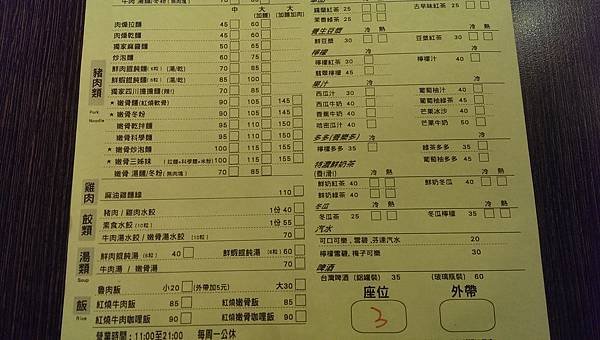 牛肉 湯麵/冬粉 (無肉塊) 70 85
中 大(加麵) 大(加麵加肉)
豬肉類
Pork
Noodle
肉燥拉麵 45 60
肉燥乾麵 45 60
獨家麻醬麵 50 65
炒泡麵 60 75
鮮肉餛飩麵(6粒) (湯/乾) 70 85
鮮蝦餛飩麵(5粒) (湯/乾) 85 100
獨家四川擔擔麵(辣!) 70 85
★ 嫩骨麵(紅燒軟骨) 90 105 145
★ 嫩骨冬粉 90 105 145
嫩骨乾拌麵 95 110 150
嫩骨科學麵 95 110 150
★ 嫩骨炒泡麵 100 115 155
★ 嫩骨三姊妹 (拉麵+科學麵+冬粉) 100 115 155
嫩骨 湯麵/冬粉(無肉塊) 70 85
雞肉
麻油雞麵線 110
餃類
豬肉 / 雞肉水餃 1份 40
素食水餃 (10粒) 1份 55
牛肉湯水餃 / 嫩骨湯水餃 (10粒) 70
湯類
Soup
鮮肉餛飩湯 (6粒) 40 鮮蝦餛飩湯 (6粒) 60
牛肉湯 / 嫩骨湯 70
飯
Rice
魯肉飯 小20 (外帶加5元) 大30
紅燒牛肉飯 85 紅燒嫩骨飯 85
紅燒牛肉咖哩飯 90 紅燒嫩骨咖哩飯 90
營業時間:11:00至21:00 每周一公休
羅蘭紅茶 25 古早味紅茶 25
茉香綠茶 25
養生豆漿 冷 熱 冷 熱
鮮豆漿 30 豆漿紅茶 30
檸檬 冷 冷
檸檬紅茶 30 檸檬汁 40
翡翠檸檬 45
果汁 冷 冷
西瓜汁 30 葡萄柚汁 40
西瓜牛奶 40 葡萄柚綠茶 45
香蕉牛奶 40 芒果冰沙 40
哈密瓜汁 40 芒果牛奶 50
多多(養樂多) 冷 冷
檸檬多多 35 綠茶多多 35
葡萄柚多多 45
特濃鮮奶茶
冷 熱 冷 熱
鮮奶紅茶 40 鮮奶冬瓜 40
鮮奶綠茶 40
冬瓜 冷 熱 冷 熱
冬瓜茶 25 冬瓜檸檬 35
汽水
可口可樂,雪碧,芬達汽水 20
檸檬雪碧,梅子可樂 30
啤酒
台灣啤酒 (鋁罐裝) 35 (玻瑤瓶裝) 60
座位 外帶
3